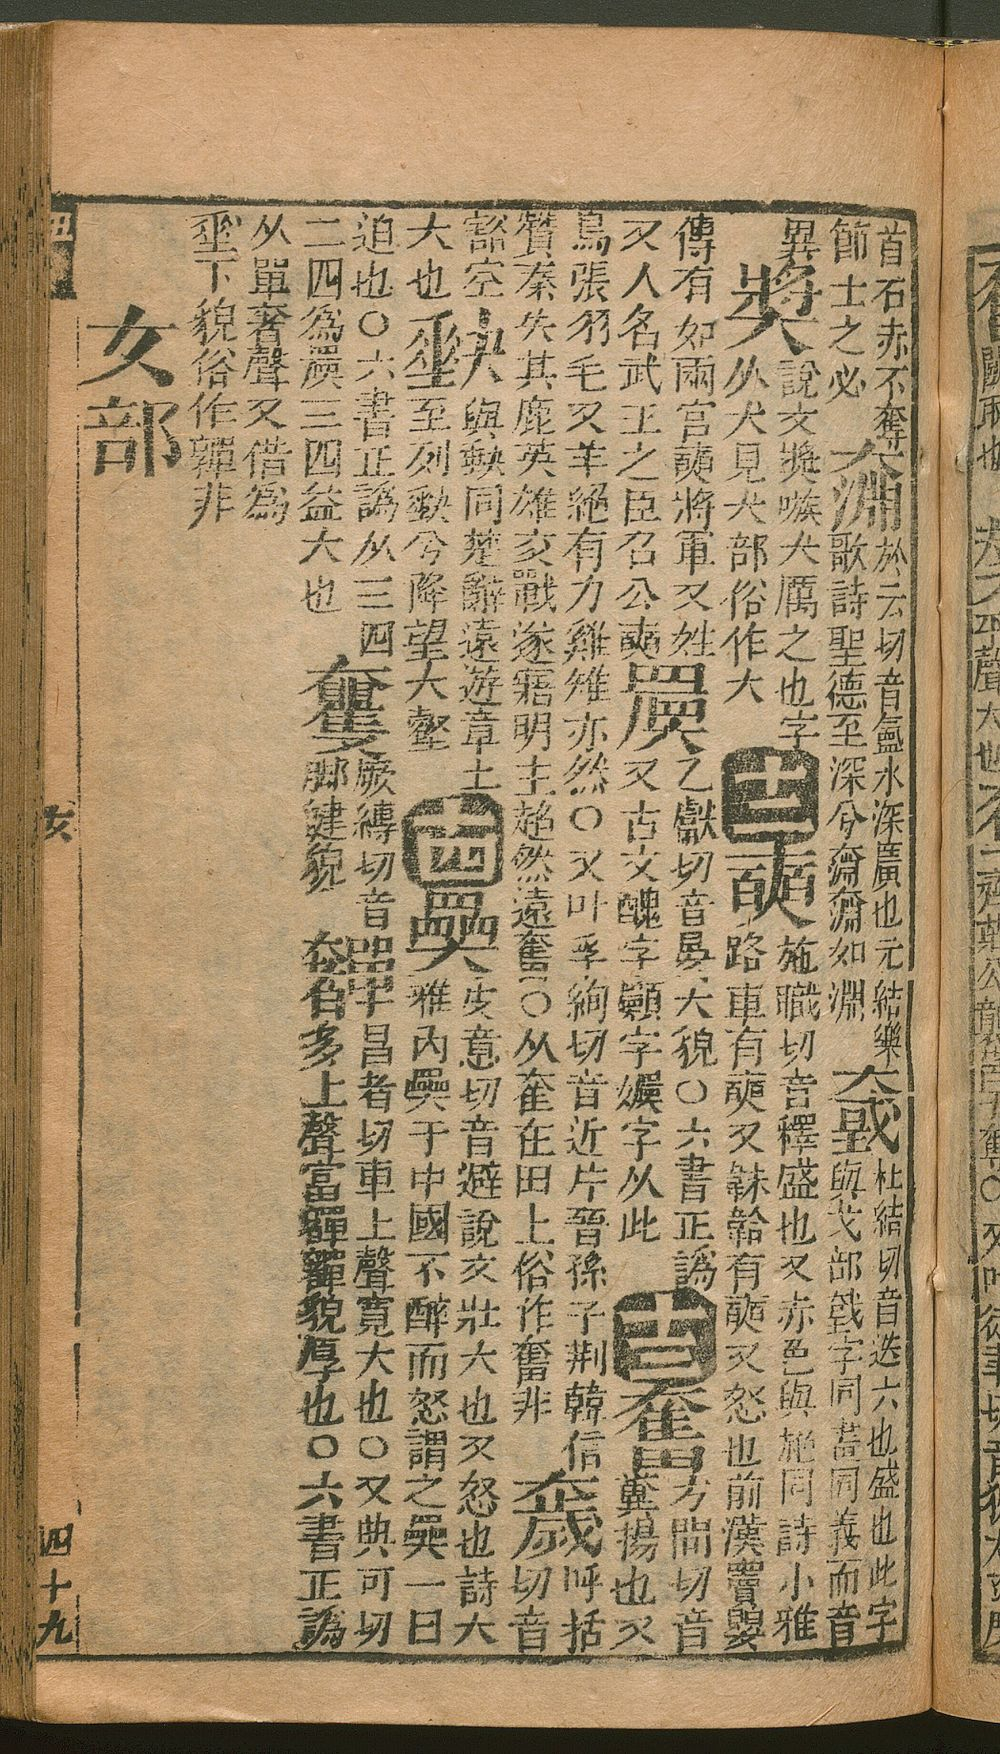 首石赤不奪
節士之必
奫
於云切音氳水深廣也元結樂
歌詩聖德至深兮奫奫如淵
杜結切音迭大也盛也此字
與戈部戜字同畫同義而音
異
獎
說文獎嗾犬厲之也字
从犬見犬部俗作大
十二
奭
施職切音釋盛也又赤色與赩同詩小雅
路車有奭又韎韐有奭又怒也前漢竇嬰
傳有如兩宮奭將軍又姓
又人名武王之臣召公奭
乙獻切音晏大貌〇六書正譌
又古文醜字顯字嬽字从此
十三
奮
方問切音
糞揚也又
鳥張羽毛又羊絕有力雞雉亦然〇又叶孚絢切音近片晉孫子荆韓信
贊秦失其鹿英雄交戰遂寤明主超然遠奮〇从奞在田上俗作奮非
呼括
切音
豁空
大也
與缺同楚辭遠遊章上
至列缺兮降望大壑
十四
奰
皮意切音避說文壯大也又怒也詩大
雅內奰于中國不醉而怒謂之奰一曰
迫也〇六書正譌从三四
二四為䀠三四益大也
厥縛切音
脚健貌
奲
昌者切車上聲寬大也〇又典可切
多上聲富奲奲貌厚也〇六書正譌
从單奢聲又借為
垂下貌俗作奲非
女部
丑
女
四十九